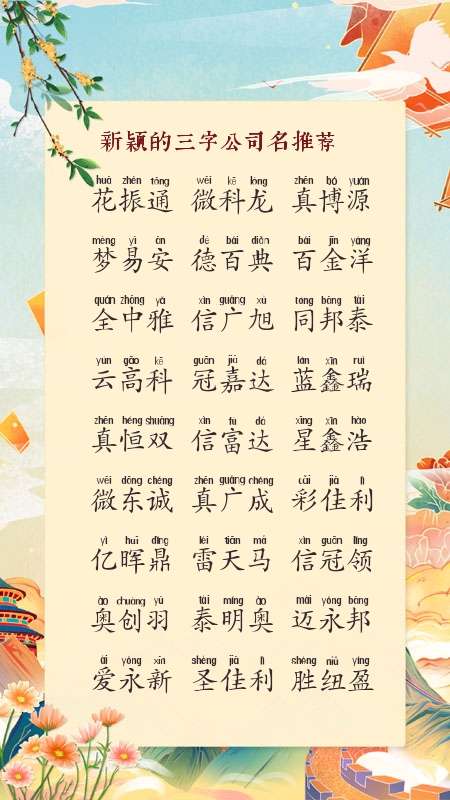 新颖的三字公司名推荐
huā zhèn tōng wēi kē lóng zhēn bó yuán
花振通 微科龙 真博源
mèng yì ān dé bǎi diǎn bǎi jīn yáng
梦易安 德百典 百金洋
quán zhōng yǎ xìn guǎng xù tóng bāng tài
全中雅 信广旭 同邦泰
yún gāo kē guān jiā dá lán xīn ruì
云高科 冠嘉达 蓝鑫瑞
zhēn héng shuāng xìn fù dá xīng xīn hào
真恒双 信富达 星鑫浩
wēi dōng chéng zhēn guǎng chéng cǎi jiā lì
微东诚 真广成 彩佳利
yì huī dǐng léi tiān mǎ xìn guān lǐng
亿晖鼎 雷天马 信冠领
ào chuàng yǔ tài míng ào mài yǒng bāng
奥创羽 泰明奥 迈永邦
ài yǒng xīn shèng jiā lì shèng niǔ yíng
爱永新 圣佳利 胜纽盈